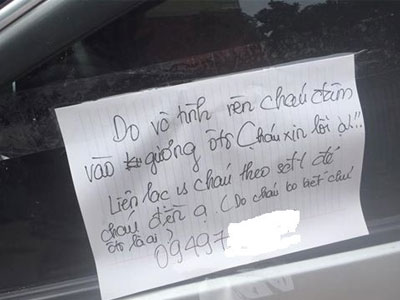 Do vô tình nên cháu đâm
vào gương ôtô (Cháu xin lỗi ạ!!
Liên lạc vs cháu theo sđt để
cháu đền ạ (Do cháu ko biết chủ
ôtô là ai)
09497